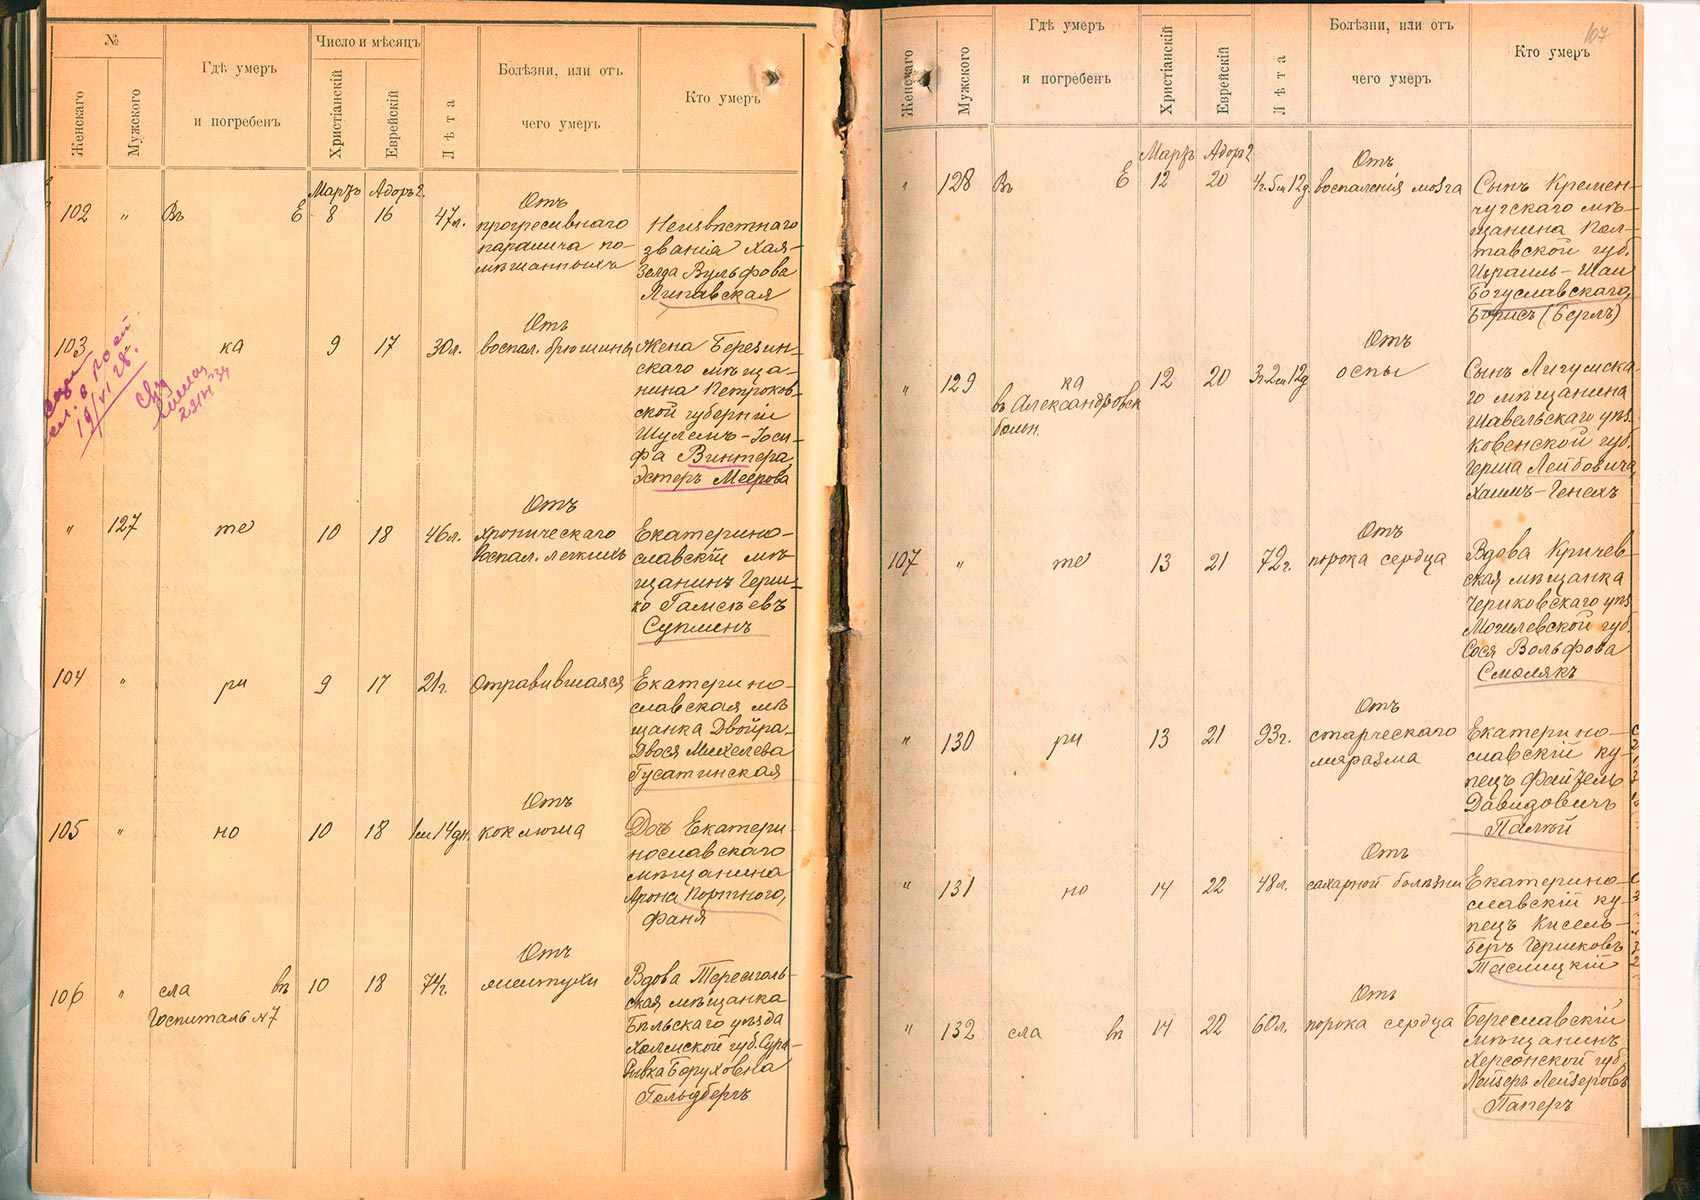 №
Женскаго
Мужского
Гдѣ умеръ
и погребенъ
Число и мѣсяцъ
Христіанскій
Еврейскій
Лѣта
Болѣзни, или отъ
чего умеръ
Кто умеръ
Мартъ Адоръ 2.
102 " Въ Е 8 16 47л.
Отъ
прогресивнаго
паралича по-
мѣшанныхъ
Неизвѣстнаго
званія Хая-
Зелда Вульфова
Липавская
103 " ка 9 17 30л.
Отъ
воспал. брюшины
Жена Березин-
скаго мѣща-
нина Петроков-
ской губерніи
Шулемъ-Іоси-
фа Винтера,
Эстеръ Меерова
19/VI 28.
" 127 те 10 18 46л.
Отъ
хроническаго
воспал. легкихъ
Екатерино-
славскій мѣ-
щанинъ Герш-
ко
Супминъ
104 " ри 9 17 21г.
Отравившаяся
Екатерино-
славская мѣ-
щанка Двойра-
Двося Михелева
Гусатинская
105 " но 10 18 1м 14дн.
Отъ
коклюша
Дочь Екатери-
нославскаго
мѣщанина
Арона Портного,
Фаня
106 " сла въ 10 18 74г.
Госпиталь №7
Отъ
желтухи
Вдова
ская мѣщанка
Бѣльскаго уѣзда
Холмской губ. Сура-
Ривка Боруховна
Гольдбергъ
107
Женскаго
Мужского
Гдѣ умеръ
и погребенъ
Христіанскій
Еврейскій
Лѣта
Болѣзни, или отъ
чего умеръ
Кто умеръ
Мартъ Адоръ 2
" 128 Въ Е 12 20 4г. 5м 12д
Отъ
воспаленія мозга
Сынъ Кремен-
чугскаго мѣ-
щанина Пол-
тавской губ.
Израиль-Шаи
Богуславскаго,
Борисъ (Берлъ)
" 129 ка 12 20 3г 2м 12д
въ Александровск
больн.
Отъ
оспы
Сынъ Лигумска-
го мѣщанина
Шавельскаго уѣз.
Ковенской губ.
Герша Лейбовича,
Хаимъ-Генехъ
107 " те 13 21 72г.
Отъ
порока сердца
Вдова Кричев-
ская мѣщанка
Чериковскаго уѣз.
Могилевской губ.
Сося Вольфова
Смолякъ
" 130 ри 13 21 93г.
Отъ
старческаго
маразма
Екатерино-
славскій ку-
пецъ Файтель
Давидовичъ
Палѣй
" 131 но 14 22 48л.
Отъ
сахарной болѣзни
Екатерино-
славскій ку-
пецъ Кисель-
Беръ Гершковъ
Тасмицкій
" 132 сла въ 14 22 60л.
Отъ
порока сердца
Береславскій
мѣщанинъ
Херсонской губ.
Лейзеръ Лейзеровъ
Паперъ